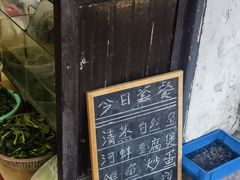 今日菜餐
清蒸白丝鱼
河蚌豆腐煲
炒蛋